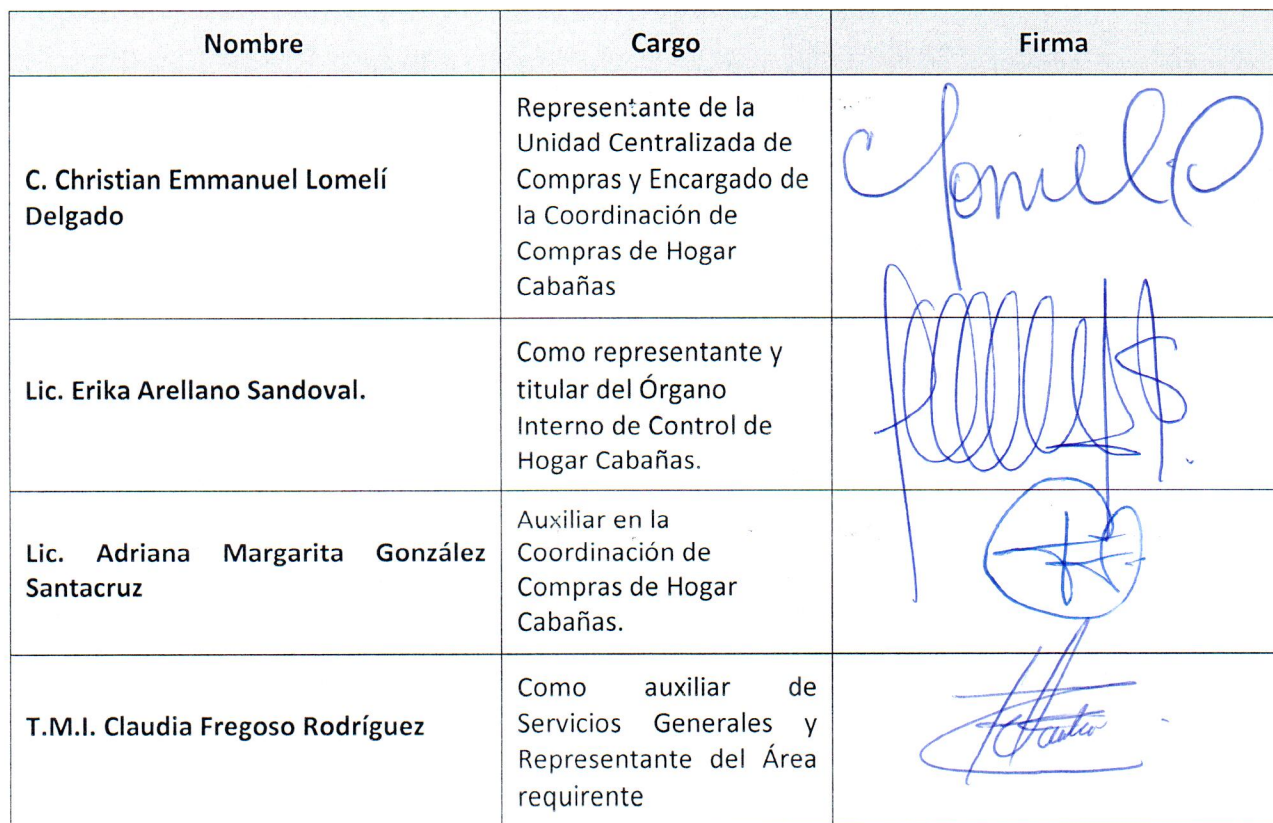 Nombre Cargo Firma
C. Christian Emmanuel Lomelí
Delgado
Representante de la
Unidad Centralizada de
Compras y Encargado de
la Coordinación de
Compras de Hogar
Cabañas
Lic. Erika Arellano Sandoval.
Como representante y
titular del Órgano
Interno de Control de
Hogar Cabañas.
Lic. Adriana Margarita González
Santacruz
Auxiliar en la
Coordinación de
Compras de Hogar
Cabañas.
T.M.I. Claudia Fregoso Rodríguez
Como auxiliar de
Servicios Generales y
Representante del Área
requirente